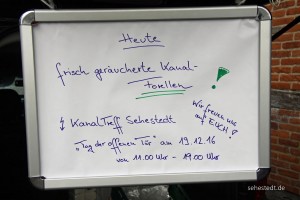 Heute
frisch geräucherte Kanal-
forellen !
Wir freuen uns
auf EUCH!
↯ KanalTreff Sehestedt
"Tag der offenen Tür" am 19.12.16
von 11.00 Uhr - 19.00 Uhr
sehestedt.de